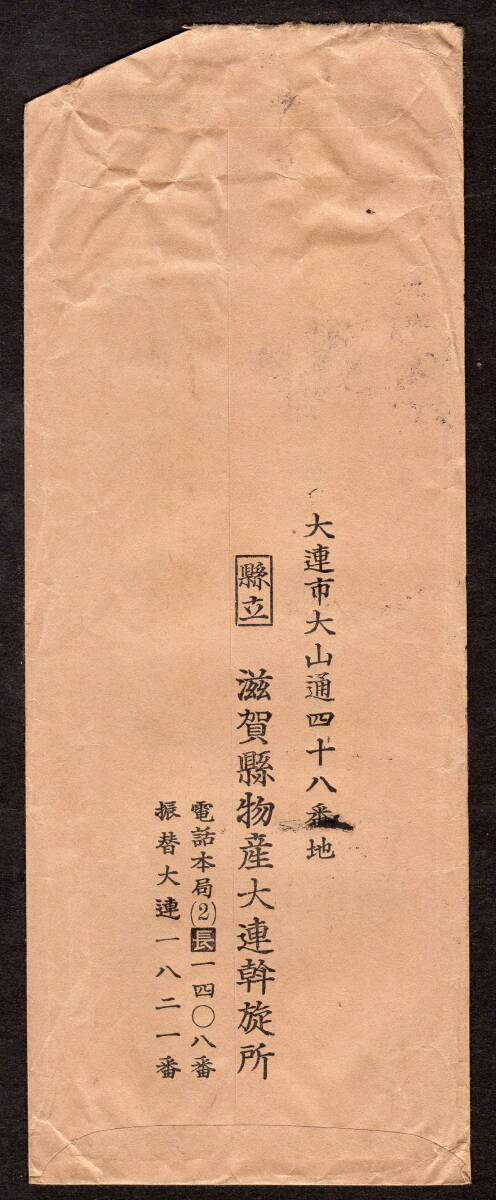 大連市大山通四十八番地
縣立 滋賀縣物産大連斡旋所
電話本局(2)長一四〇八番
振替大連一八二一番